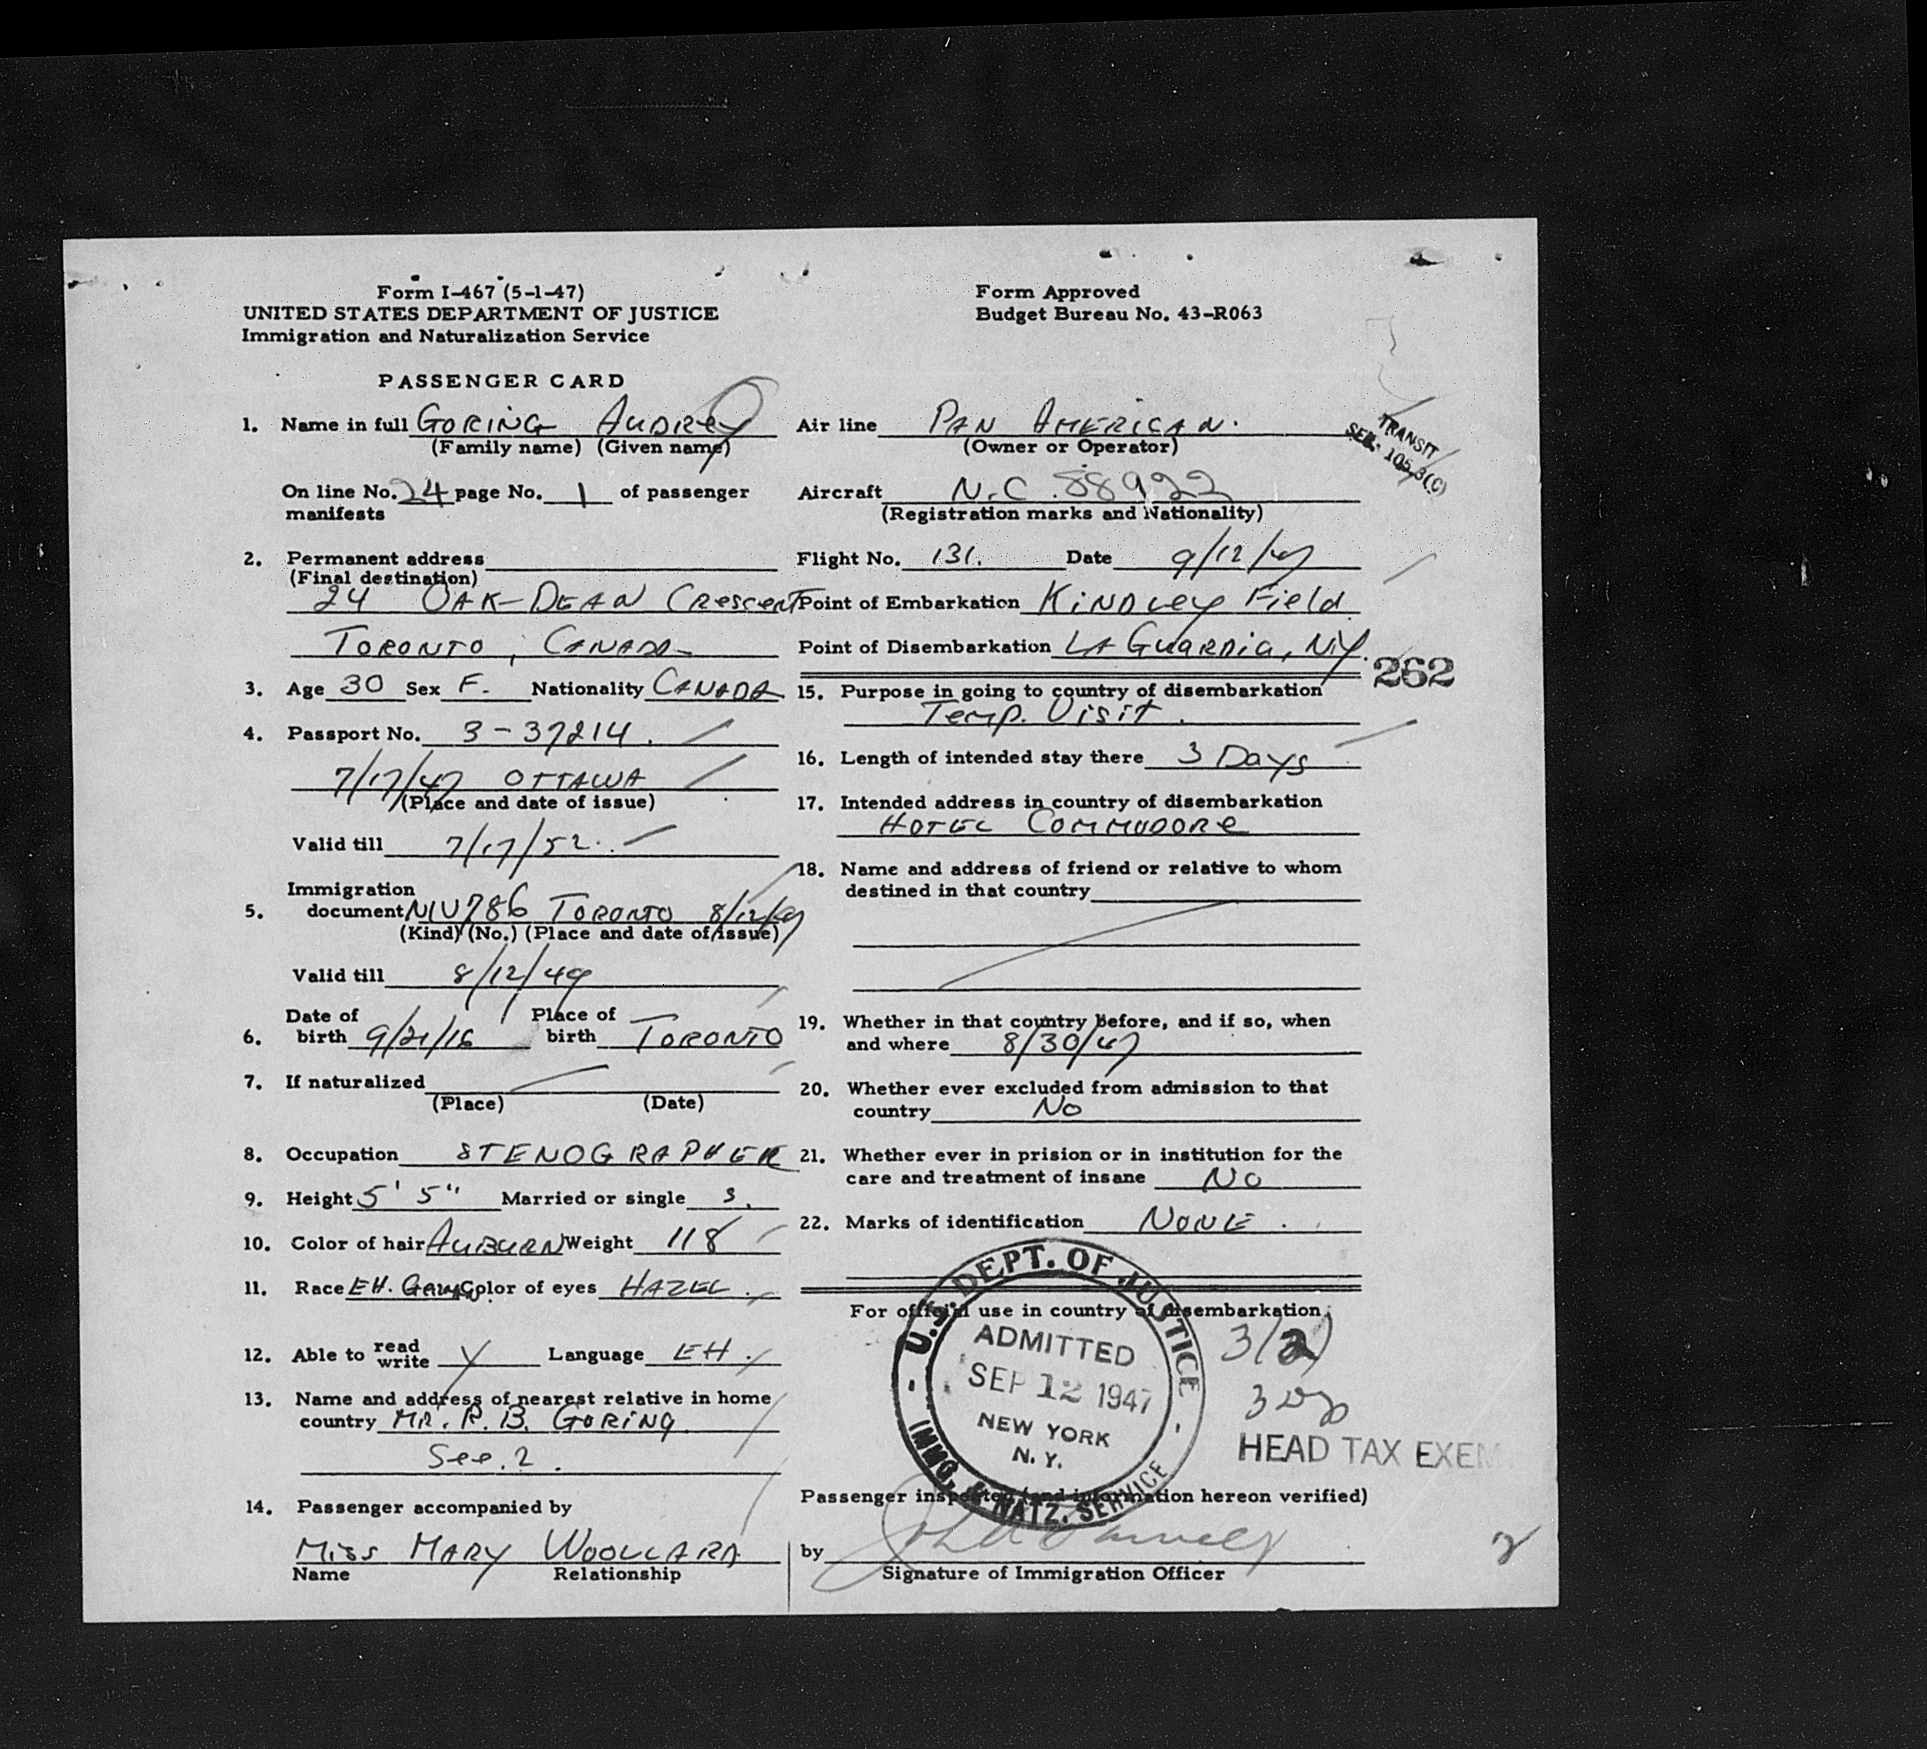 Form I-467 (5-1-47)
UNITED STATES DEPARTMENT OF JUSTICE
Immigration and Naturalization Service
Form Approved
Budget Bureau No. 43-R063
PASSENGER CARD
1. Name in full GORING AUDREY
(Family name) (Given name)
On line No. 24 page No. 1 of passenger
manifests
2. Permanent address
(Final destination)
24 OAK-DEAN CRESCENT
TORONTO, CANADA
3. Age 30 Sex F. Nationality CANADA
4. Passport No. 3-37214.
7/17/47 OTTAWA
(Place and date of issue)
Valid till 7/17/52.
Immigration
5. document NIV786 TORONTO 8/12/47
(Kind) (No.) (Place and date of issue)
Valid till 8/12/49
Date of Place of
6. birth 9/21/16 birth TORONTO
7. If naturalized
(Place) (Date)
8. Occupation STENOGRAPHER
9. Height 5' 5" Married or single S.
10. Color of hair AUBURN Weight 118
11. Race EH. Color of eyes HAZEL.
12. Able to read write Y Language EH.
13. Name and address of nearest relative in home
country MR. R. B. GORING
See. 2.
14. Passenger accompanied by
MISS MARY WOOLLARD
Name Relationship
Air line PAN AMERICAN.
(Owner or Operator)
TRANSIT
SER. 105.3(C)
Aircraft N.C. 88922
(Registration marks and Nationality)
Flight No. 131. Date 9/12/47
Point of Embarkation KINDLEY Field
Point of Disembarkation LA GUARDIA, N.Y.
262
15. Purpose in going to country of disembarkation
Temp. Visit.
16. Length of intended stay there 3 Days
17. Intended address in country of disembarkation
HOTEL COMMODORE
18. Name and address of friend or relative to whom
destined in that country
19. Whether in that country before, and if so, when
and where 8/30/47
20. Whether ever excluded from admission to that
country No
21. Whether ever in prision or in institution for the
care and treatment of insane NO
22. Marks of identification NONE.
For official use in country of disembarkation
U.S. DEPT. OF JUSTICE
ADMITTED
SEP 12 1947
NEW YORK
N. Y.
IMMG. & NATZ. SERVICE
3(2)
HEAD TAX EXEM
Passenger inspected (and information hereon verified)
by
Signature of Immigration Officer
2